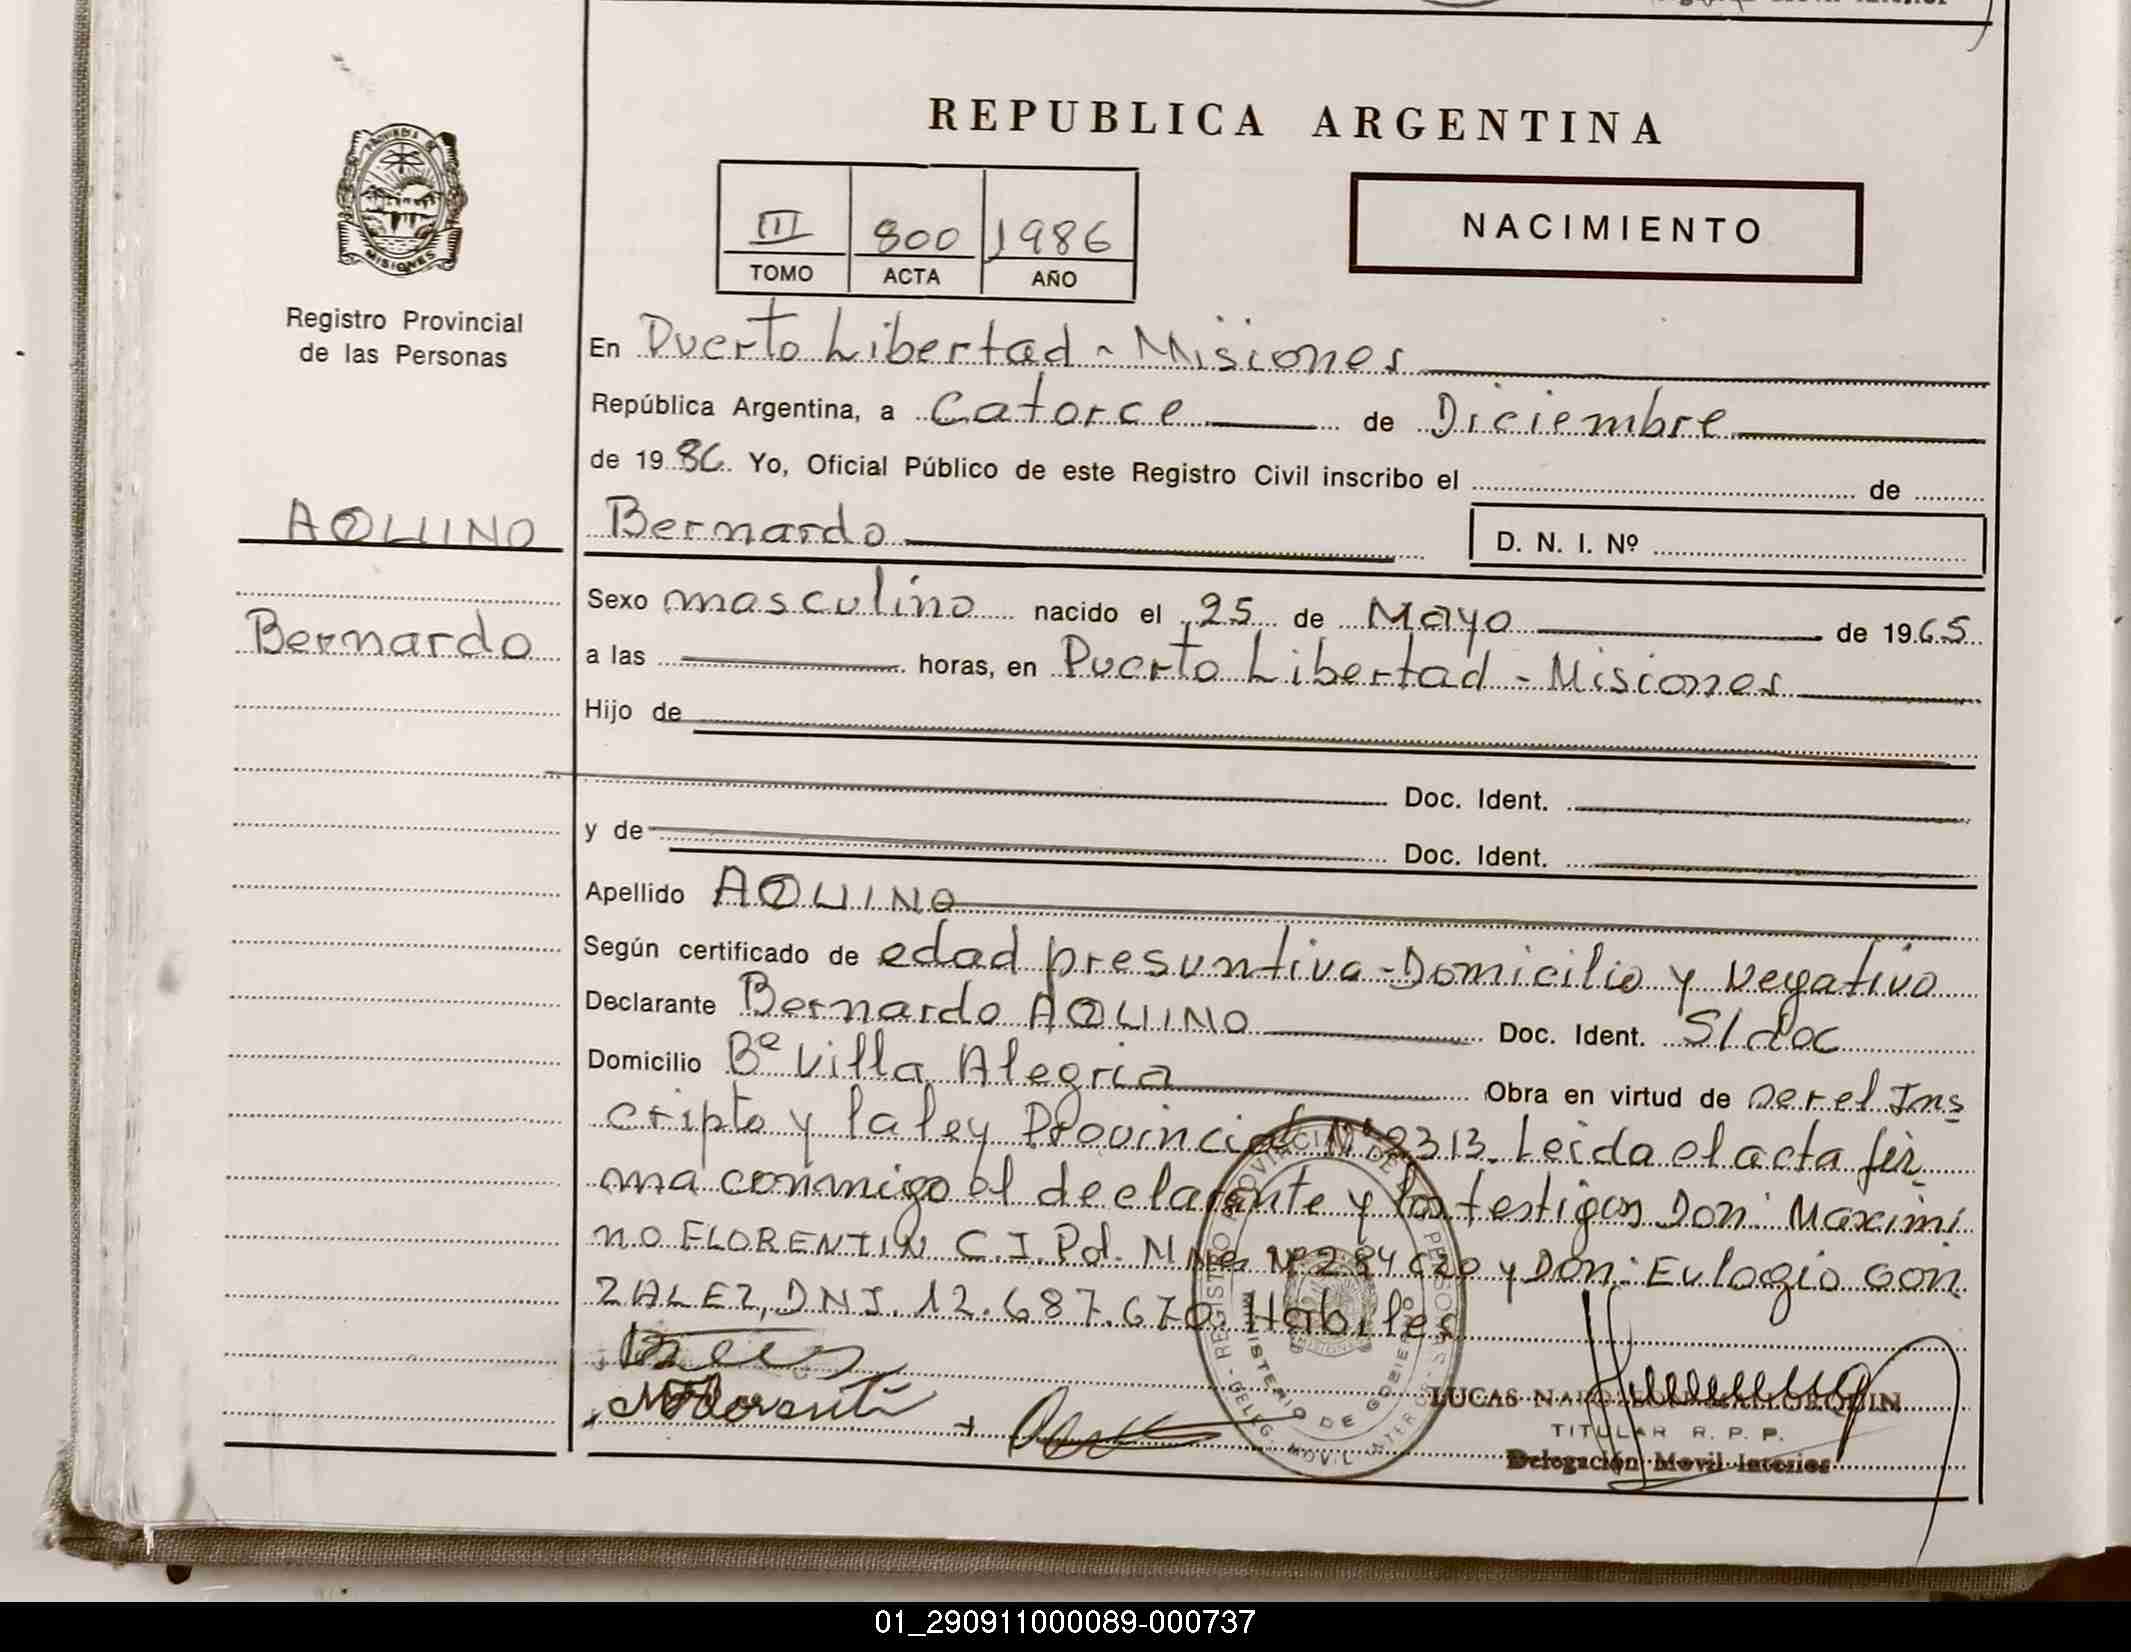 REPUBLICA ARGENTINA
PROVINCIA DE
MISIONES
III 800 1986
TOMO ACTA AÑO
NACIMIENTO
Registro Provincial
de las Personas
AQUINO
Bernardo
En Puerto Libertad - Misiones
República Argentina, a Catorce de Diciembre
de 1986 Yo, Oficial Público de este Registro Civil inscribo el de
Bernardo D. N. I. Nº
Sexo masculino nacido el 25 de Mayo de 1965
a las horas, en Puerto Libertad - Misiones
Hijo de
Doc. Ident.
y de Doc. Ident.
Apellido AQUINO
Según certificado de edad presuntiva - Domicilio y Negativo
Declarante Bernardo AQUINO Doc. Ident. S/doc
Domicilio Bº Villa Alegria Obra en virtud de ser el Ins
cripto y la ley Provincial Nº 2313. Leida el acta fir
ma conmigo el declarante y los testigos Don: Maximi
no FLORENTIN C.I. Pol. Mnes Nº 284 620 y Don: Eulogio Gon
ZALEZ, DNI. 12.687.670. Habiles
REGISTRO PROVINCIAL DE LAS PERSONAS
MINISTERIO DE GOBIERNO
DELEG. MOVIL INTERIOR
LUCAS MALLORQUIN
TITULAR R. P. P.
Delegación Movil Interior
01_290911000089-000737